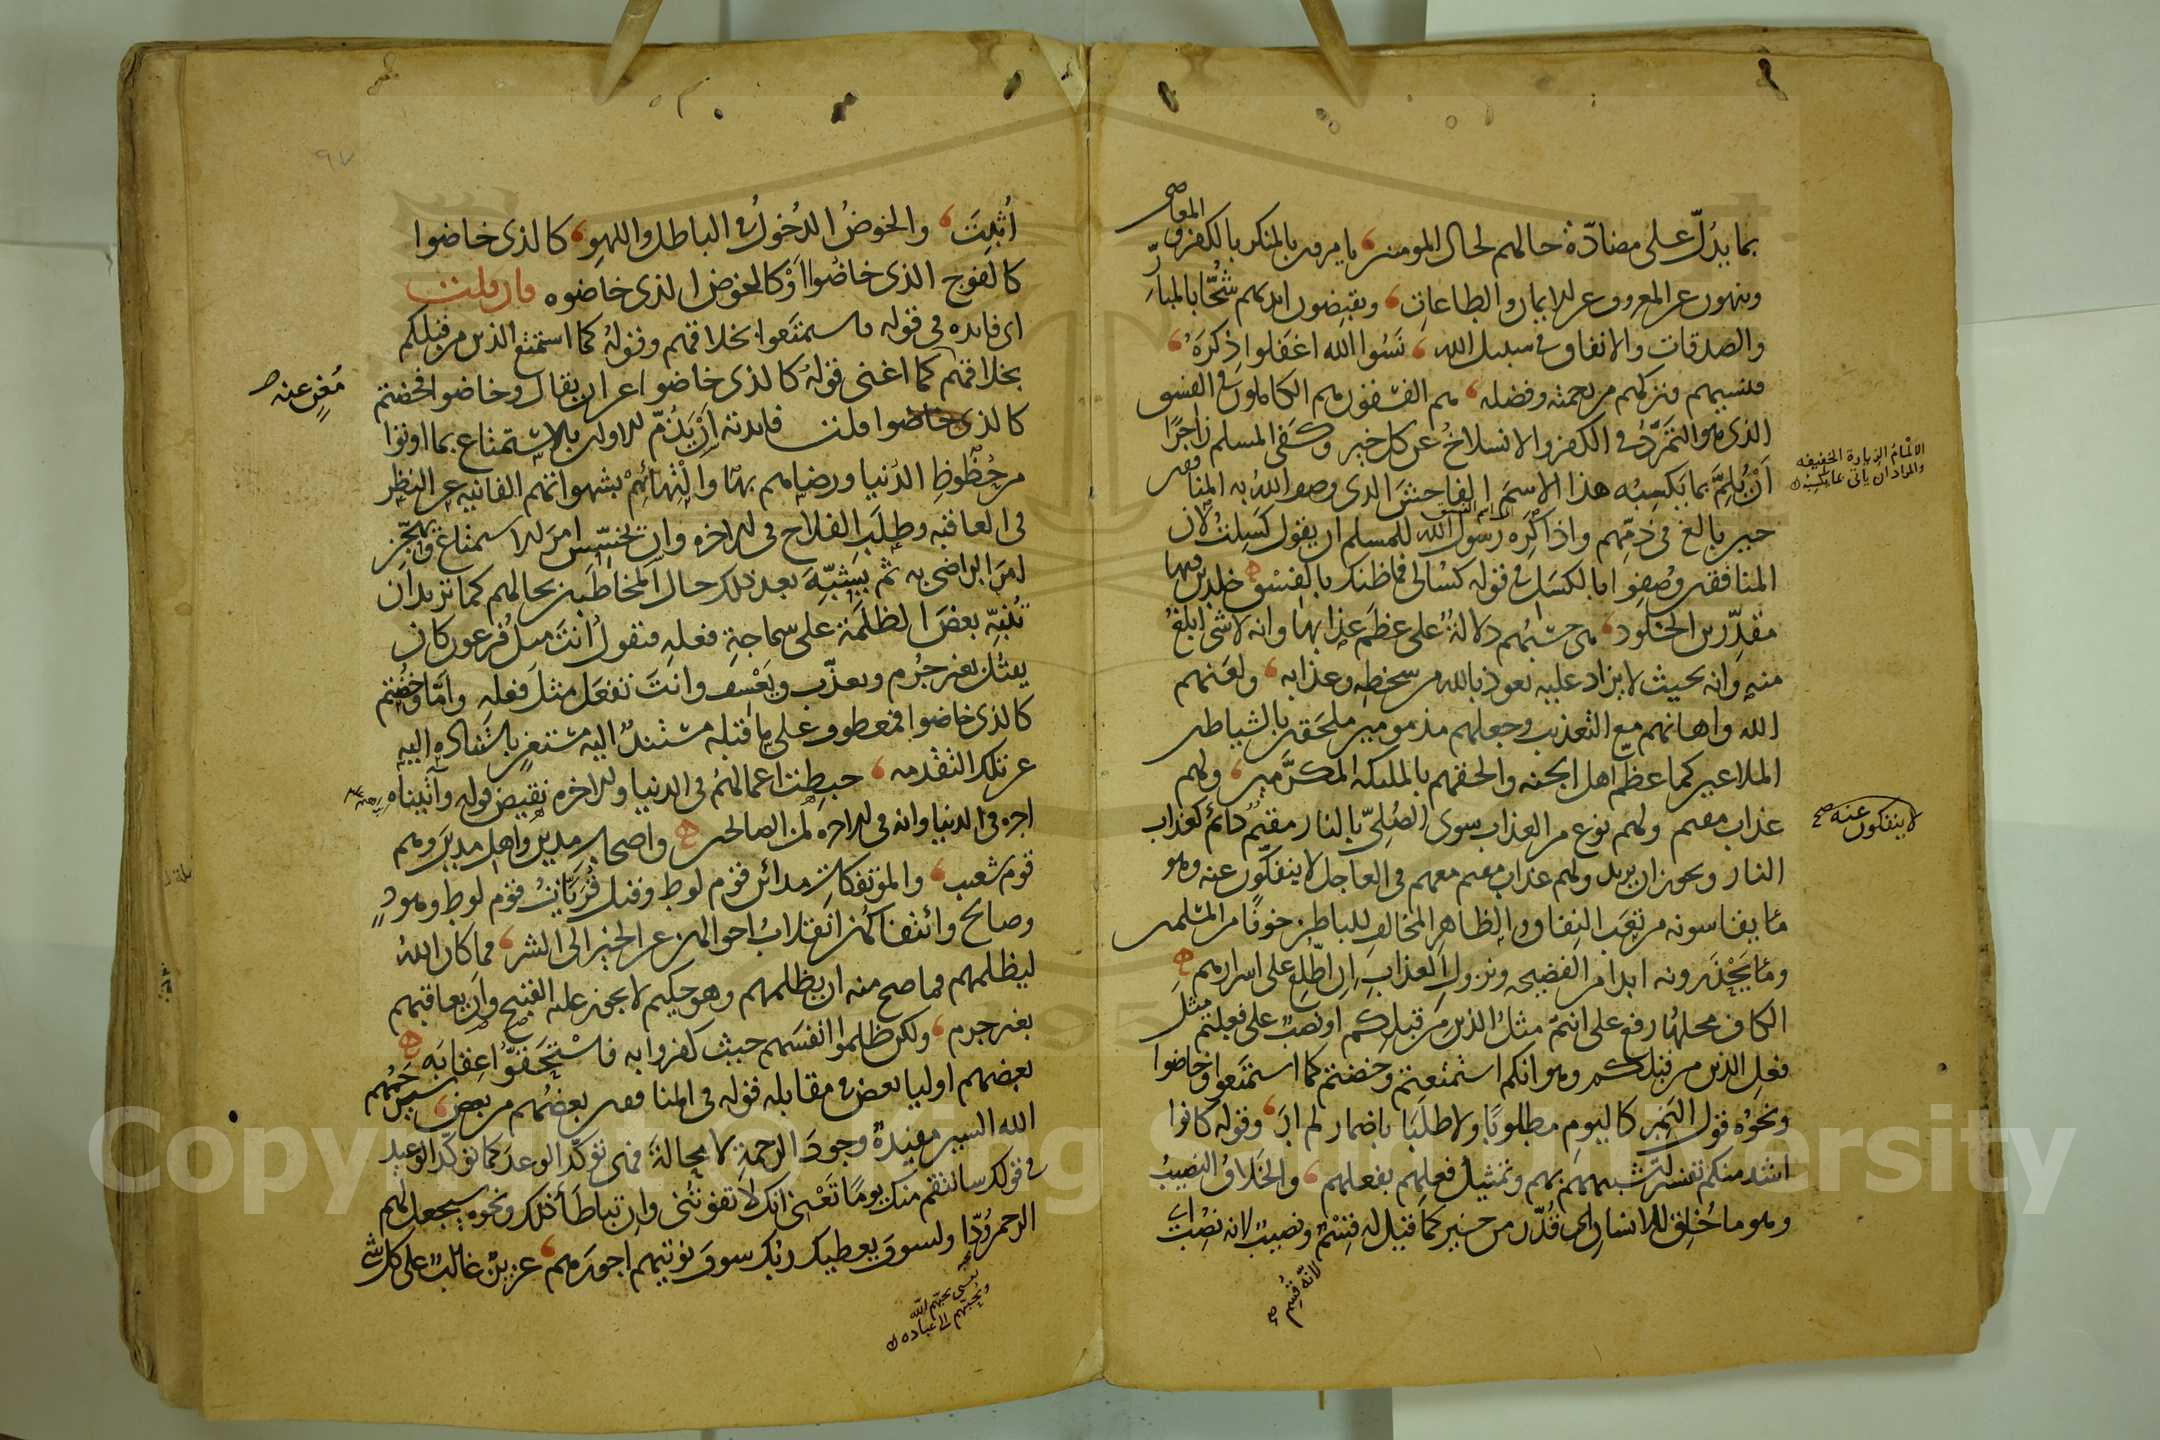 بما يدُلّ على مضادّة حالهم لحال المومنين يامرون بالمنكر بالكفر والمعاصى
وينهون عن المعروف عن الايمان والطاعات ويقبضون ايديهم شُحّا بالمبارِّ
والصدقات والانفاق فى سبيل الله نَسُوا الله اغفلوا ذكرَه
فنسيهم فتركهم من رحمته وفضله هم الفسقون هم الكاملون فى الفسق
الذى هو التمرّدُ فى الكفر والانسلاخُ عن كل خير وكفى المسلم زاجرًا
اَنْ يُلِمَّ بما يَكسِبُه هذا الاسمَ الفاحشَ الذى وصف اللهُ به المنافقين
حين بالغ فى ذمّهم واذا كَرِه رسول الله للمسلم ان يقول كَسِلتُ لان
المنافقين وُصِفوا بالكسَل فى قوله كسالى فما ظنك بالفسْق خلدين فيها
مقدِّرين الخلود هى حسْبُهم دلالةٌ على عظم عذابها وانه لا شى ابلغُ
منه وانه بحيث لا يزاد عليه نعوذ بالله من سخطه وعذابه ولعنهم
الله واهانهم مع التعذيب وجعلهم مذمومين ملحَقين بالشياطين
الملاعين كما عظّم اهل الجنه والحقهم بالملئكه المكرَّمين ولهم
عذاب مقيم ولهم نوع من العذاب سوى الصُلِىّ بالنار مقيمٌ دائم كعذاب
النار ويجوز ان يريد ولهم عذاب مقيم معهم فى العاجل لا ينفكّون عنه وهو
ما يقاسونه من تعَب النِفاق والظاهرِ المخالفِ للباطن خوفًا من المسلمين
وما يَحْذَرونه ابدا من الفضيحه ونزولِ العذابِ اِن اطُّلع على اسرارهم
الكاف محلها رفع على انتم مثلُ الذين من قبلكم او نصبٌ على فعلتم مثل
فعلِ الذين من قبلكم وهو انكم استمتعتم وخضتم كما استمتعوا وخاضوا
ونحوُه قول النَمِر كاليوم مطلوبًا ولا طلَبًا باضمار لم ارَ وقوله كانوا
اشد منكم تفسيرٌ لتشبيههم بهم وتمثيلُ فعلِهم بفعلهم والخَلاقُ النصيبُ
وهو ما خُلِق للانسان اى قُدّر من خير كما قيل له قِسْمٌ ونصيبٌ لانه نصِبَ اى
الالمامُ الزيارة الخفيفه
والمراد ان ياتى
لا ينفكون عنه صح
لانه قُسِم صح
٩٧
اُثبِتَ والخوضُ الدُخولُ فى الباطل واللهوِ كالذى خاضوا
كالفوج الذى خاضُوا اَوْ كالخوض الذى خاضوه فان قلت
اى فايده فى قوله فاستمتَعوا بخلاقهم وقولُه كما استمتع الذين من قبلكم
بخلاقهم كما اغنى قولُه كالذى خاضوا عن ان يقال وخاضوا فخضتم
كالذى خاضوا قلت فايدته اَنْ يَذُمّ الاولين بالاستمتاع بما اوتوا
من حُظُوظِ الدُنيا ورضاهم بها والْتِهائِهمْ بشهواتهم الفانيه عن النظر
فى العاقبه وطلَبِ الفلاح فى الاخره وان يخسِّس امرَ الاستمتاع ويهجِّن
امرَ الراضى به ثم يشبِّهَ بعد ذلك حال المخاطَبين بحالهم كما تريد ان
تُنبّه بعضَ الظلَمَة على سماجةِ فعلِه فتقولُ انتَ مثلُ فرعون كان
يقتُل بغير جُرم ويعذّب ويَعْسِف وانتَ تفعَل مثلَ فعله وامّا وخُضتم
كالذى خاضوا فمعطوف على ما قبله مستندٌ اليه مستغنٍ باستناده اليه
عن تلك التقدمه حبِطت اعمالهُم فى الدنيا والاخره نقيض قوله وآتيناه
اجره فى الدنيا وانه فى الاخره لمن الصالحين واصحاب مدين واهل مدين وهم
قوم شعيب والمؤتفكات مدائن قوم لوط وقيل قُرَيّات قوم لوط وهودٍ
وصالح وائتفاكُهنّ انقلابُ احوالهن عن الخير الى الشر فما كان اللهُ
ليظلمهم فما صح منه ان يظلمهم وهو حكيم لا يجوز عليه القبيح وان يعاقبهم
بغير جرم ولكن ظلموا انفسَهم حيث كفروا به فاستحقّوا عِقابَه
بعضهم اوليا بعض فى مقابله قوله فى المنافقين بعضُهم من بعض سيرحَمُهم
الله السين مفيدةٌ وجودَ الرحمةِ لا محالةَ فهى توكّد الوعدَ كما توكّد الوعيد
فى قولك سانتقم منك يومًا تَعْنى انك لا تفوتُنى وان تباطَأ ذلك ونحوه سيجعل لهم
الرحمن وُدّا ولسوف يعطيك ربُك سوف نوتيهم اجورَهم عزيزٌ غالبٌ على كل شى
مُغنٍ عنه
يعنى يحبّهم الله
ويُحبّبهم الى عباده